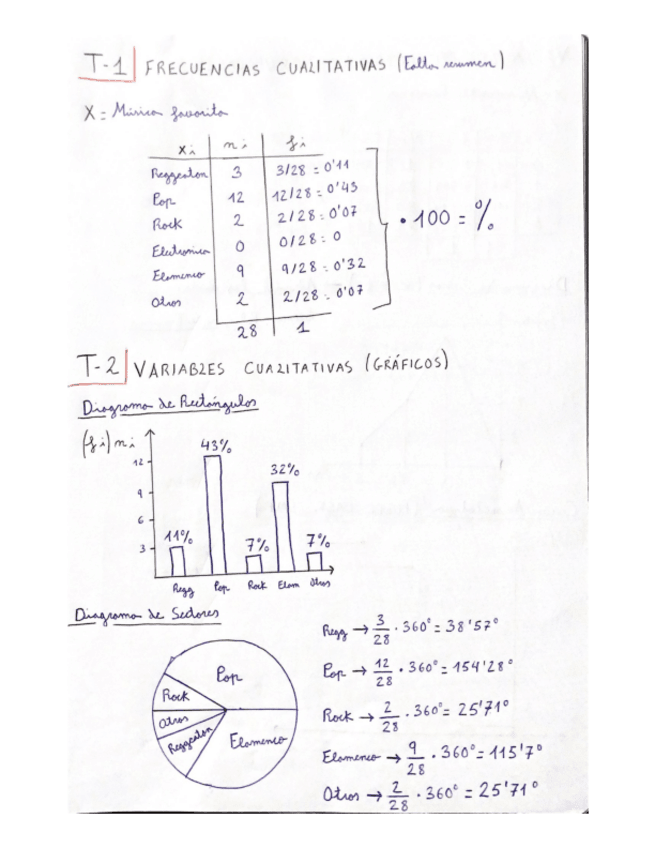 T-1 FRECUENCIAS CUALITATIVAS (Falta resumen)
X = Música favorita
xi ni fi
Reggeaton 3 3/28 = 0'11
Pop 12 12/28 = 0'43
Rock 2 2/28 = 0'07
Electronica 0 0/28 = 0
Flamenco 9 9/28 = 0'32
Otros 2 2/28 = 0'07
28 1
· 100 = %
T-2 VARIABLES CUALITATIVAS (GRÁFICOS)
Diagrama de Rectángulos
(fi) ni
12
9
6
3
11% 43% 7% 32% 7%
Regg Pop Rock Flam Otros
Diagrama de Sectores
Pop
Rock
Otros
Reggeaton
Flamenco
Regg → 3/28 · 360° = 38'57°
Pop → 12/28 · 360° = 154'28°
Rock → 2/28 · 360° = 25'71°
Flamenco → 9/28 · 360° = 115'7°
Otros → 2/28 · 360° = 25'71°